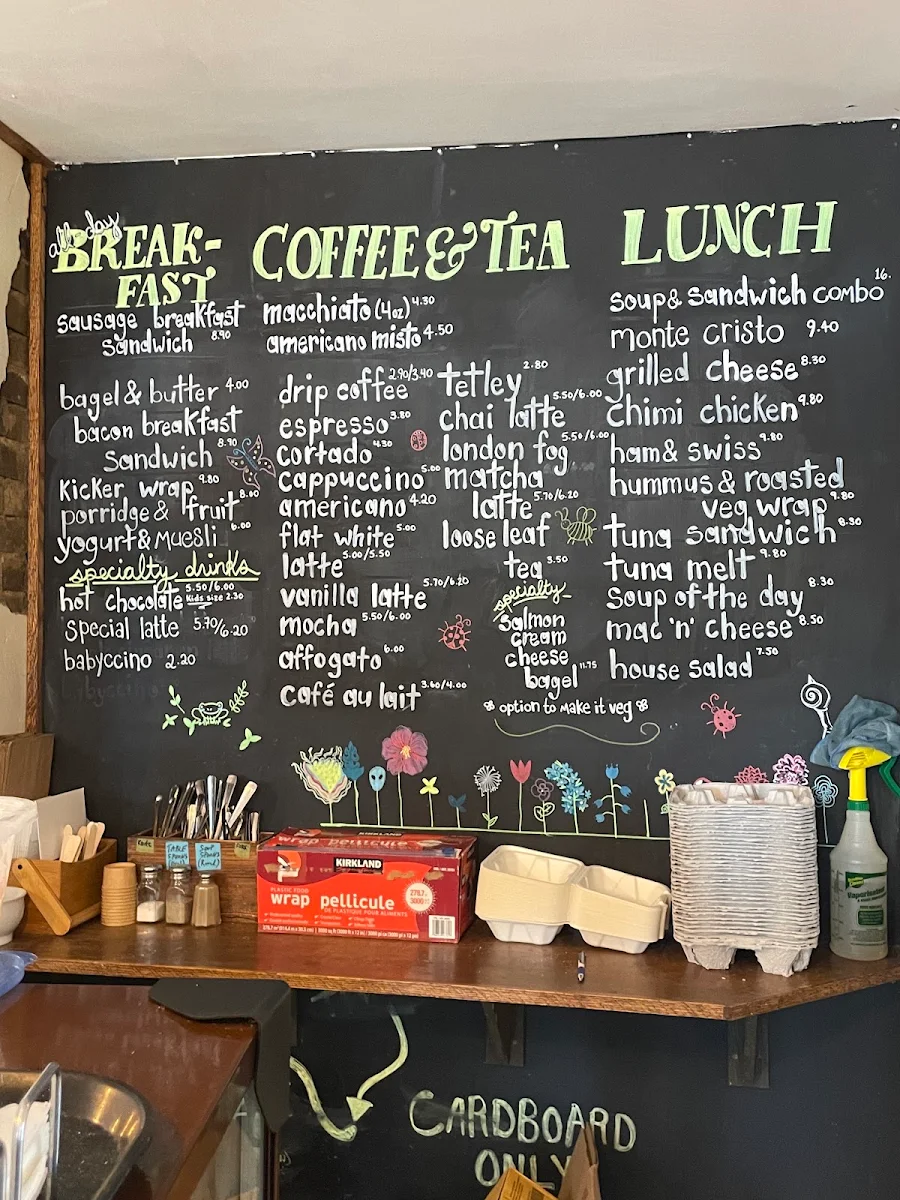 all day
BREAK-
FAST
sausage breakfast
sandwich 8.90
bagel & butter 4.00
bacon breakfast
sandwich 8.90
kicker wrap 9.80
porridge & fruit 8.00
yogurt & muesli 6.00
specialty drinks
hot chocolate 5.50/6.00
kids size 2.30
special latte 5.70/6.20
babyccino 2.20
COFFEE & TEA
macchiato (4oz) 4.30
americano misto 4.50
drip coffee 2.90/3.40
espresso 3.80
cortado 4.30
cappuccino 5.00
americano 4.20
flat white 5.00
latte 5.00/5.50
vanilla latte 5.70/6.20
mocha 5.50/6.00
affogato 6.00
café au lait 3.60/4.00
tetley 2.80
chai latte 5.50/6.00
london fog 5.50/6.00
matcha
latte 5.70/6.20
loose leaf
tea 3.50
specialty-
salmon
cream
cheese
bagel 11.75
option to make it veg
LUNCH
soup & sandwich combo 16.
monte cristo 9.40
grilled cheese 8.30
chimi chicken 9.80
ham & swiss 9.80
hummus & roasted
veg wrap 9.80
tuna sandwich 8.30
tuna melt 9.80
soup of the day 8.30
mac 'n' cheese 8.50
house salad 7.50
TABLE
SPOONS
SOUP
SPOONS
(Round)
wrap pellicule
KIRKLAND
PLASTIC FOOD
wrap pellicule
DE PLASTIQUE POUR ALIMENTS
278.7
3000
CARDBOARD
ONLY